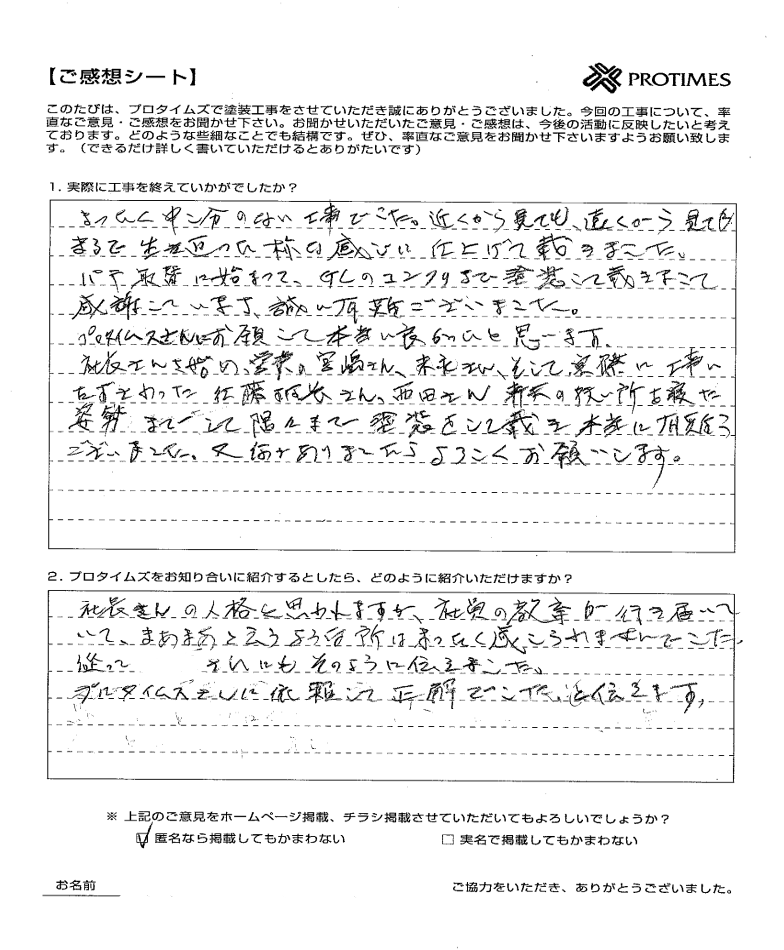 【ご感想シート】
PROTIMES
このたびは、プロタイムズで塗装工事をさせていただき誠にありがとうございました。今回の工事について、率
直なご意見・ご感想をお聞かせ下さい。お聞かせいただいたご意見・ご感想は、今後の活動に反映したいと考え
ております。どのような些細なことでも結構です。ぜひ、率直なご意見をお聞かせ下さいますようお願い致しま
す。（できるだけ詳しく書いていただけるとありがたいです）
1. 実際に工事を終えていかがでしたか？
まったく申し分のない工事でした。近くから見ても、遠くから見ても
まるで生き返った様な感じに仕上げて戴きました。
取替に始まって、のコンクリまで塗装して戴きまして
感謝しています、誠に有難うございました。
プロタイムズさんにお願いして本当に良かったと思います、
社長さんを始め、営業の宮嶋さん、末永さん、そして実際に工事に
たずさわった佐藤さん、西田さん の狭い所も寝た
姿勢までして隅々まで塗装をして戴き本当に有難う
ございました。又何かありましたらよろしくお願いします。
2. プロタイムズをお知り合いに紹介するとしたら、どのように紹介いただけますか？
社長さんの人格と思われますが、社員の教育が行き届いて
いて、まあまあと云うような所はまったく感じられませんでした、
従って さんにもそのように伝えました。
プロタイムズさんに依頼して正解でした、と伝えます、
※ 上記のご意見をホームページ掲載、チラシ掲載させていただいてもよろしいでしょうか？
☑ 匿名なら掲載してもかまわない □ 実名で掲載してもかまわない
お名前 ご協力をいただき、ありがとうございました。